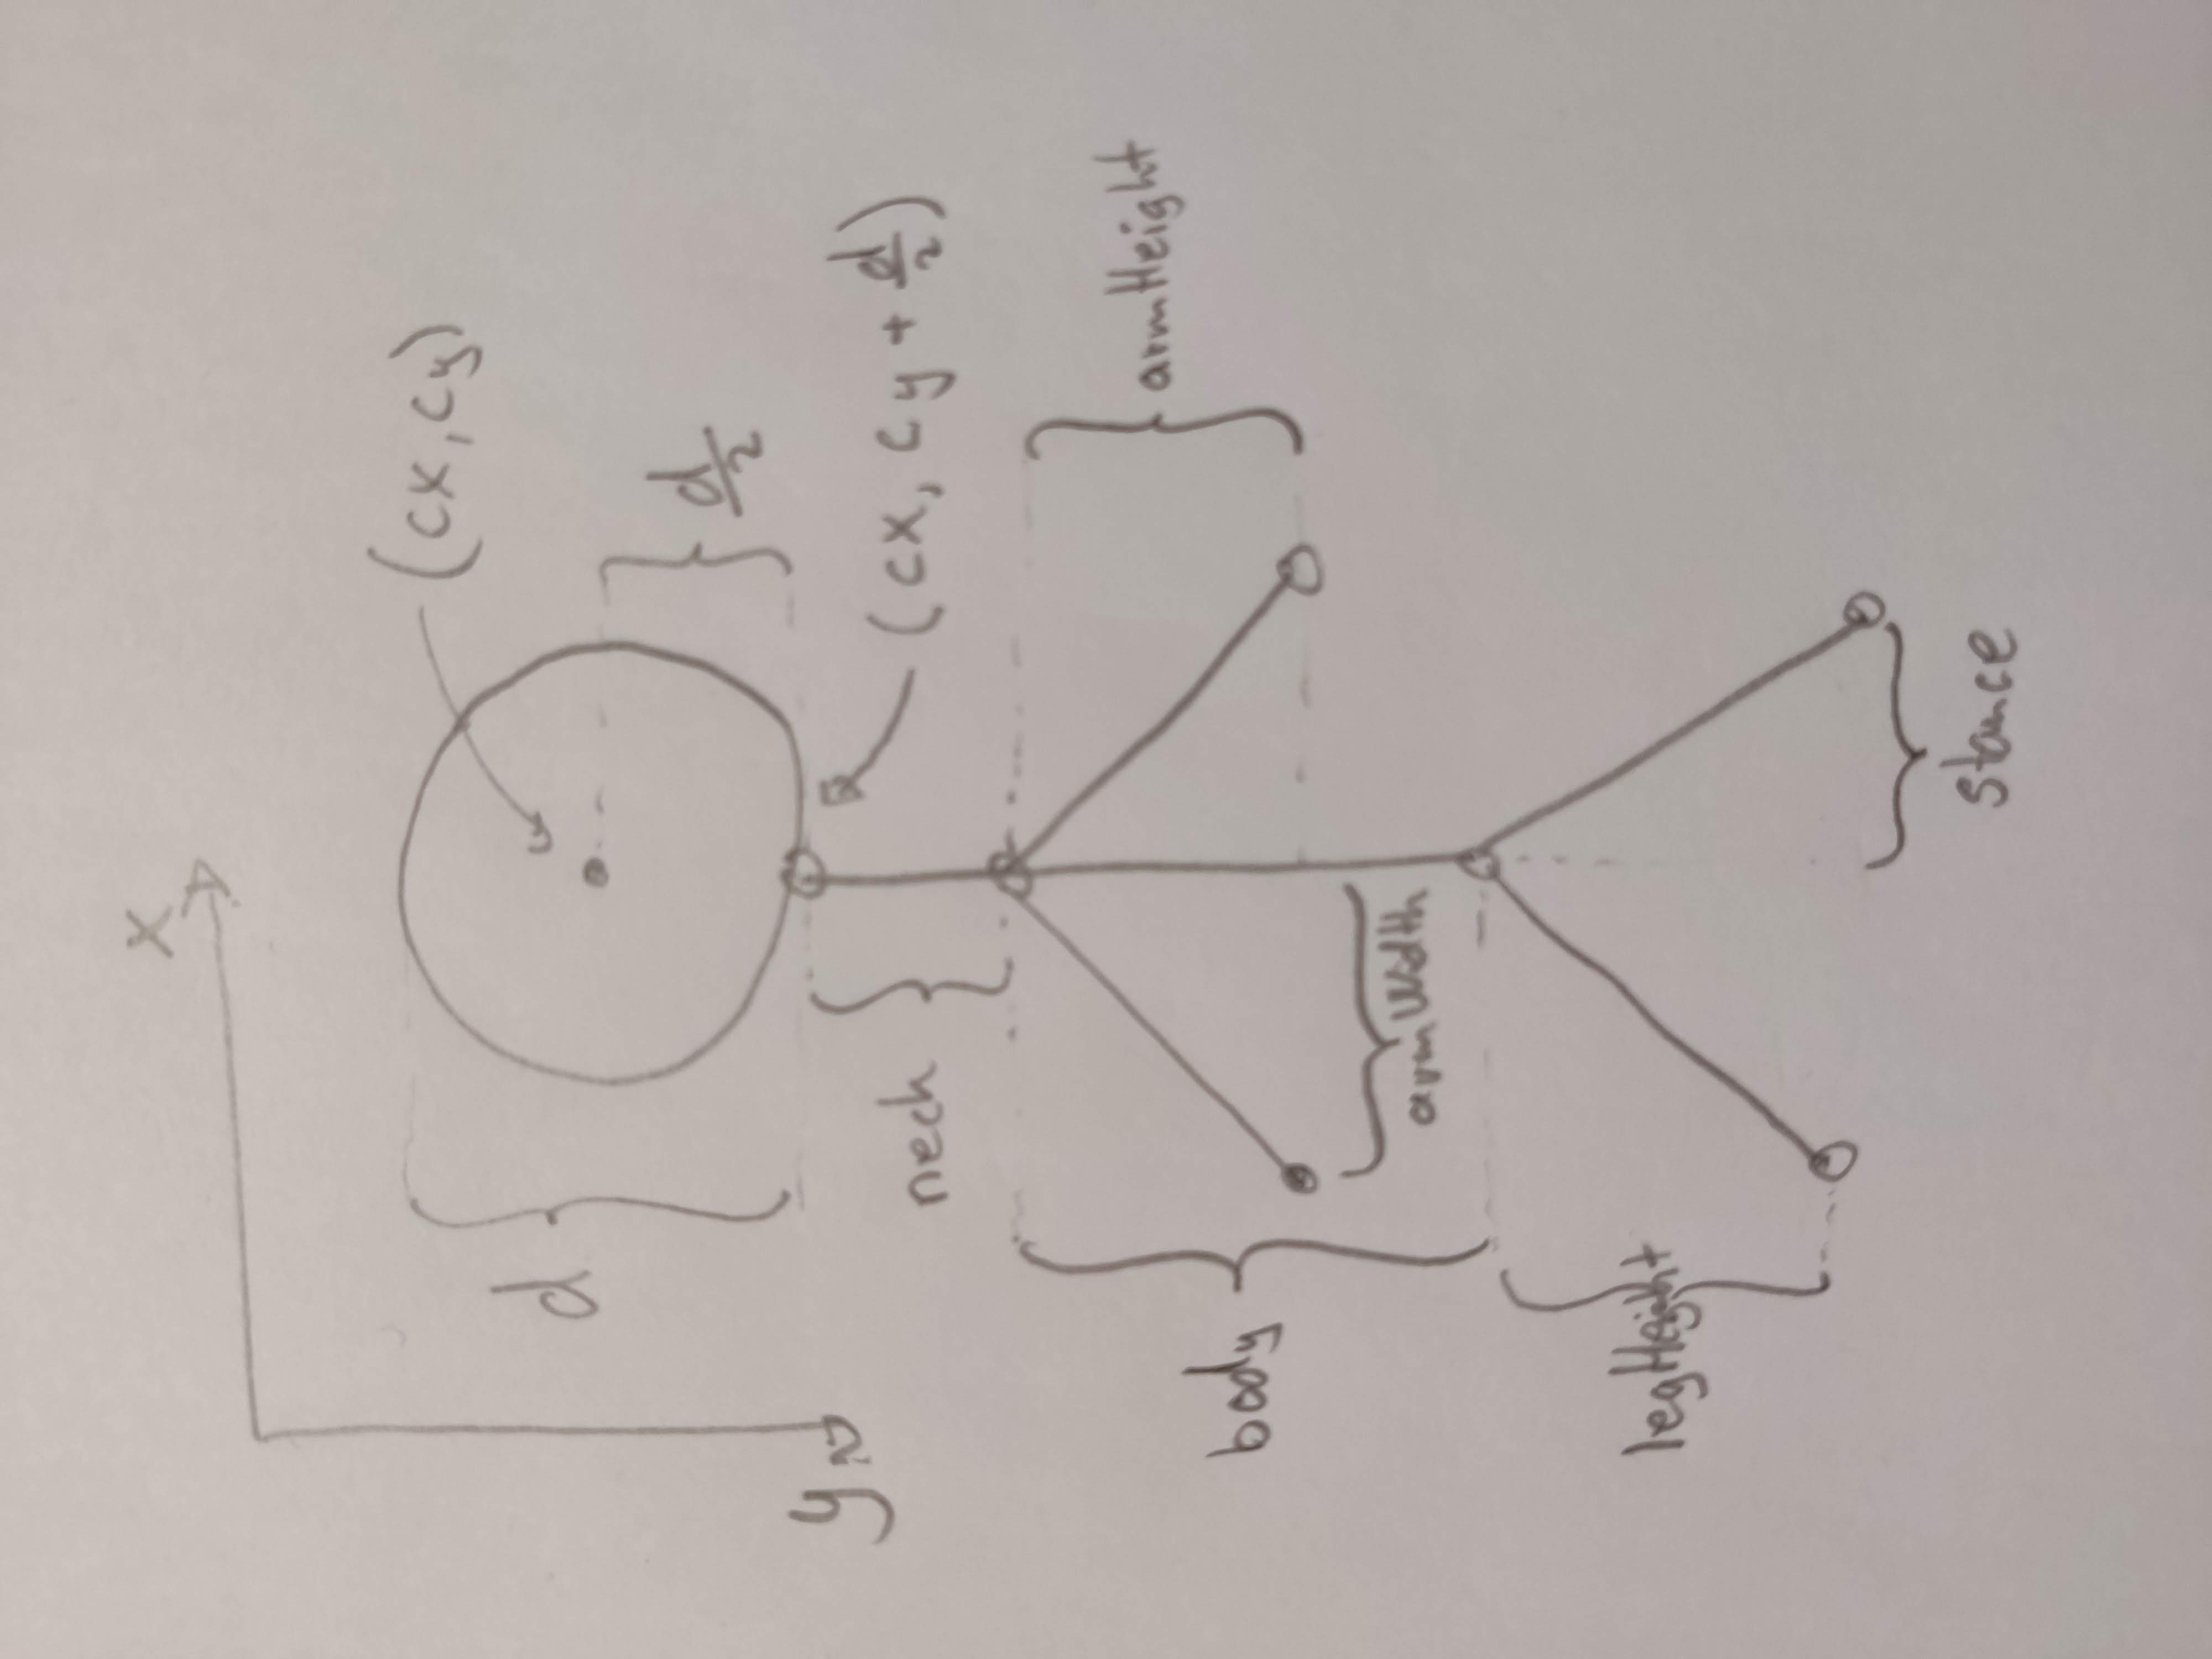 x
(cx, cy)
d
d/2
y
neck
(cx, cy + d/2)
armHeight
body
armWidth
legHeight
stance